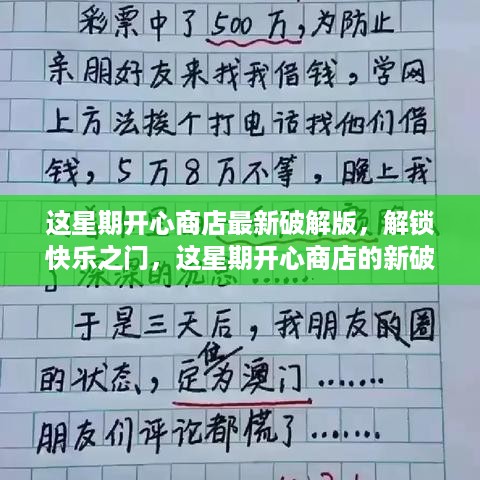 彩票中了500万，为防止
亲朋好友来找我借钱，学网
上方法挨个打电话找他们借
钱，5万8万不等，晚上我
这星期开心商店最新破解版，解锁
快乐之门，这星期开心商店的新破
于是三天后，我朋友的圈
的状态，定位为澳门.......
朋友们评论都慌了.......